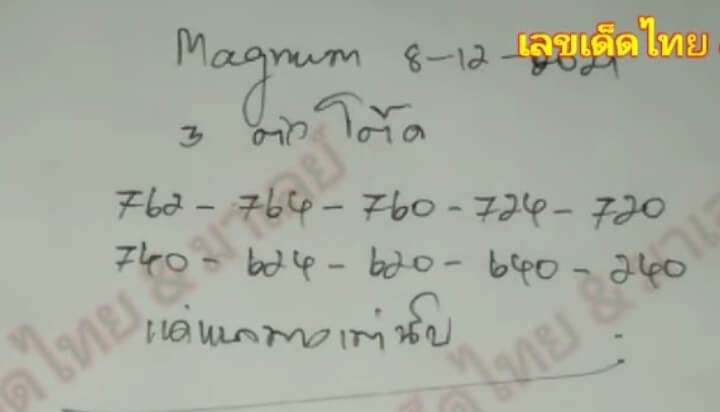 เลขเด็ดไทย &
Magnum 8-12-2021
3 ตัว โต๊ด
762 - 764 - 760 - 724 - 720
740 - 624 - 620 - 640 - 240
เท่านั้น
เด็ดไทย & มาเลย์
ด็ดไทย & มาเล